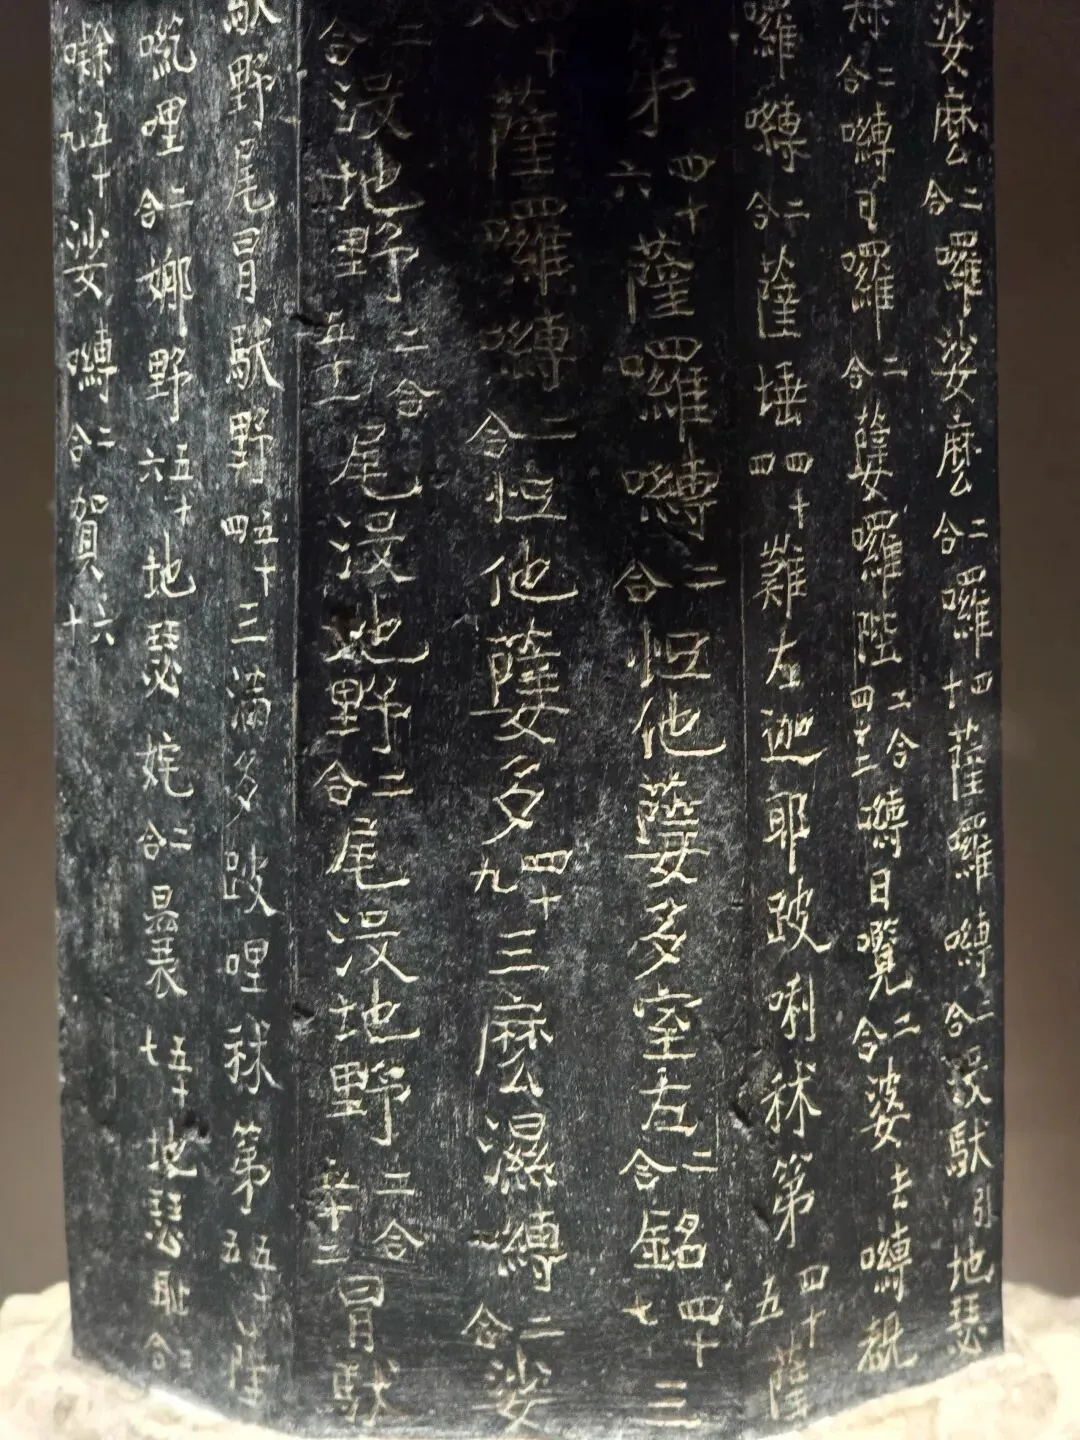 娑麼二合囉娑麼二合囉四十薩囉嚩二合馱引地瑟
二合嚩日囉二合薩囉陛二合四十三嚩日覽二合婆去嚩覩
囉嚩二合薩埵四十四難左迦耶跛唎秫第四十五薩
第四十六薩囉嚩二合怛他蘖多室左二合銘四十七三
十薩囉嚩二合怛他蘖多四十九三麼濕嚩二合娑
二合沒地野二合五十一尾沒地野二合尾沒地野二合五十二冐馱
馱野尾冐馱野五十四三滿多跛哩秫第五十五薩
哩二合娜野五十六地瑟姹二合曩五十七地瑟恥二合
五十九娑嚩二合賀六十